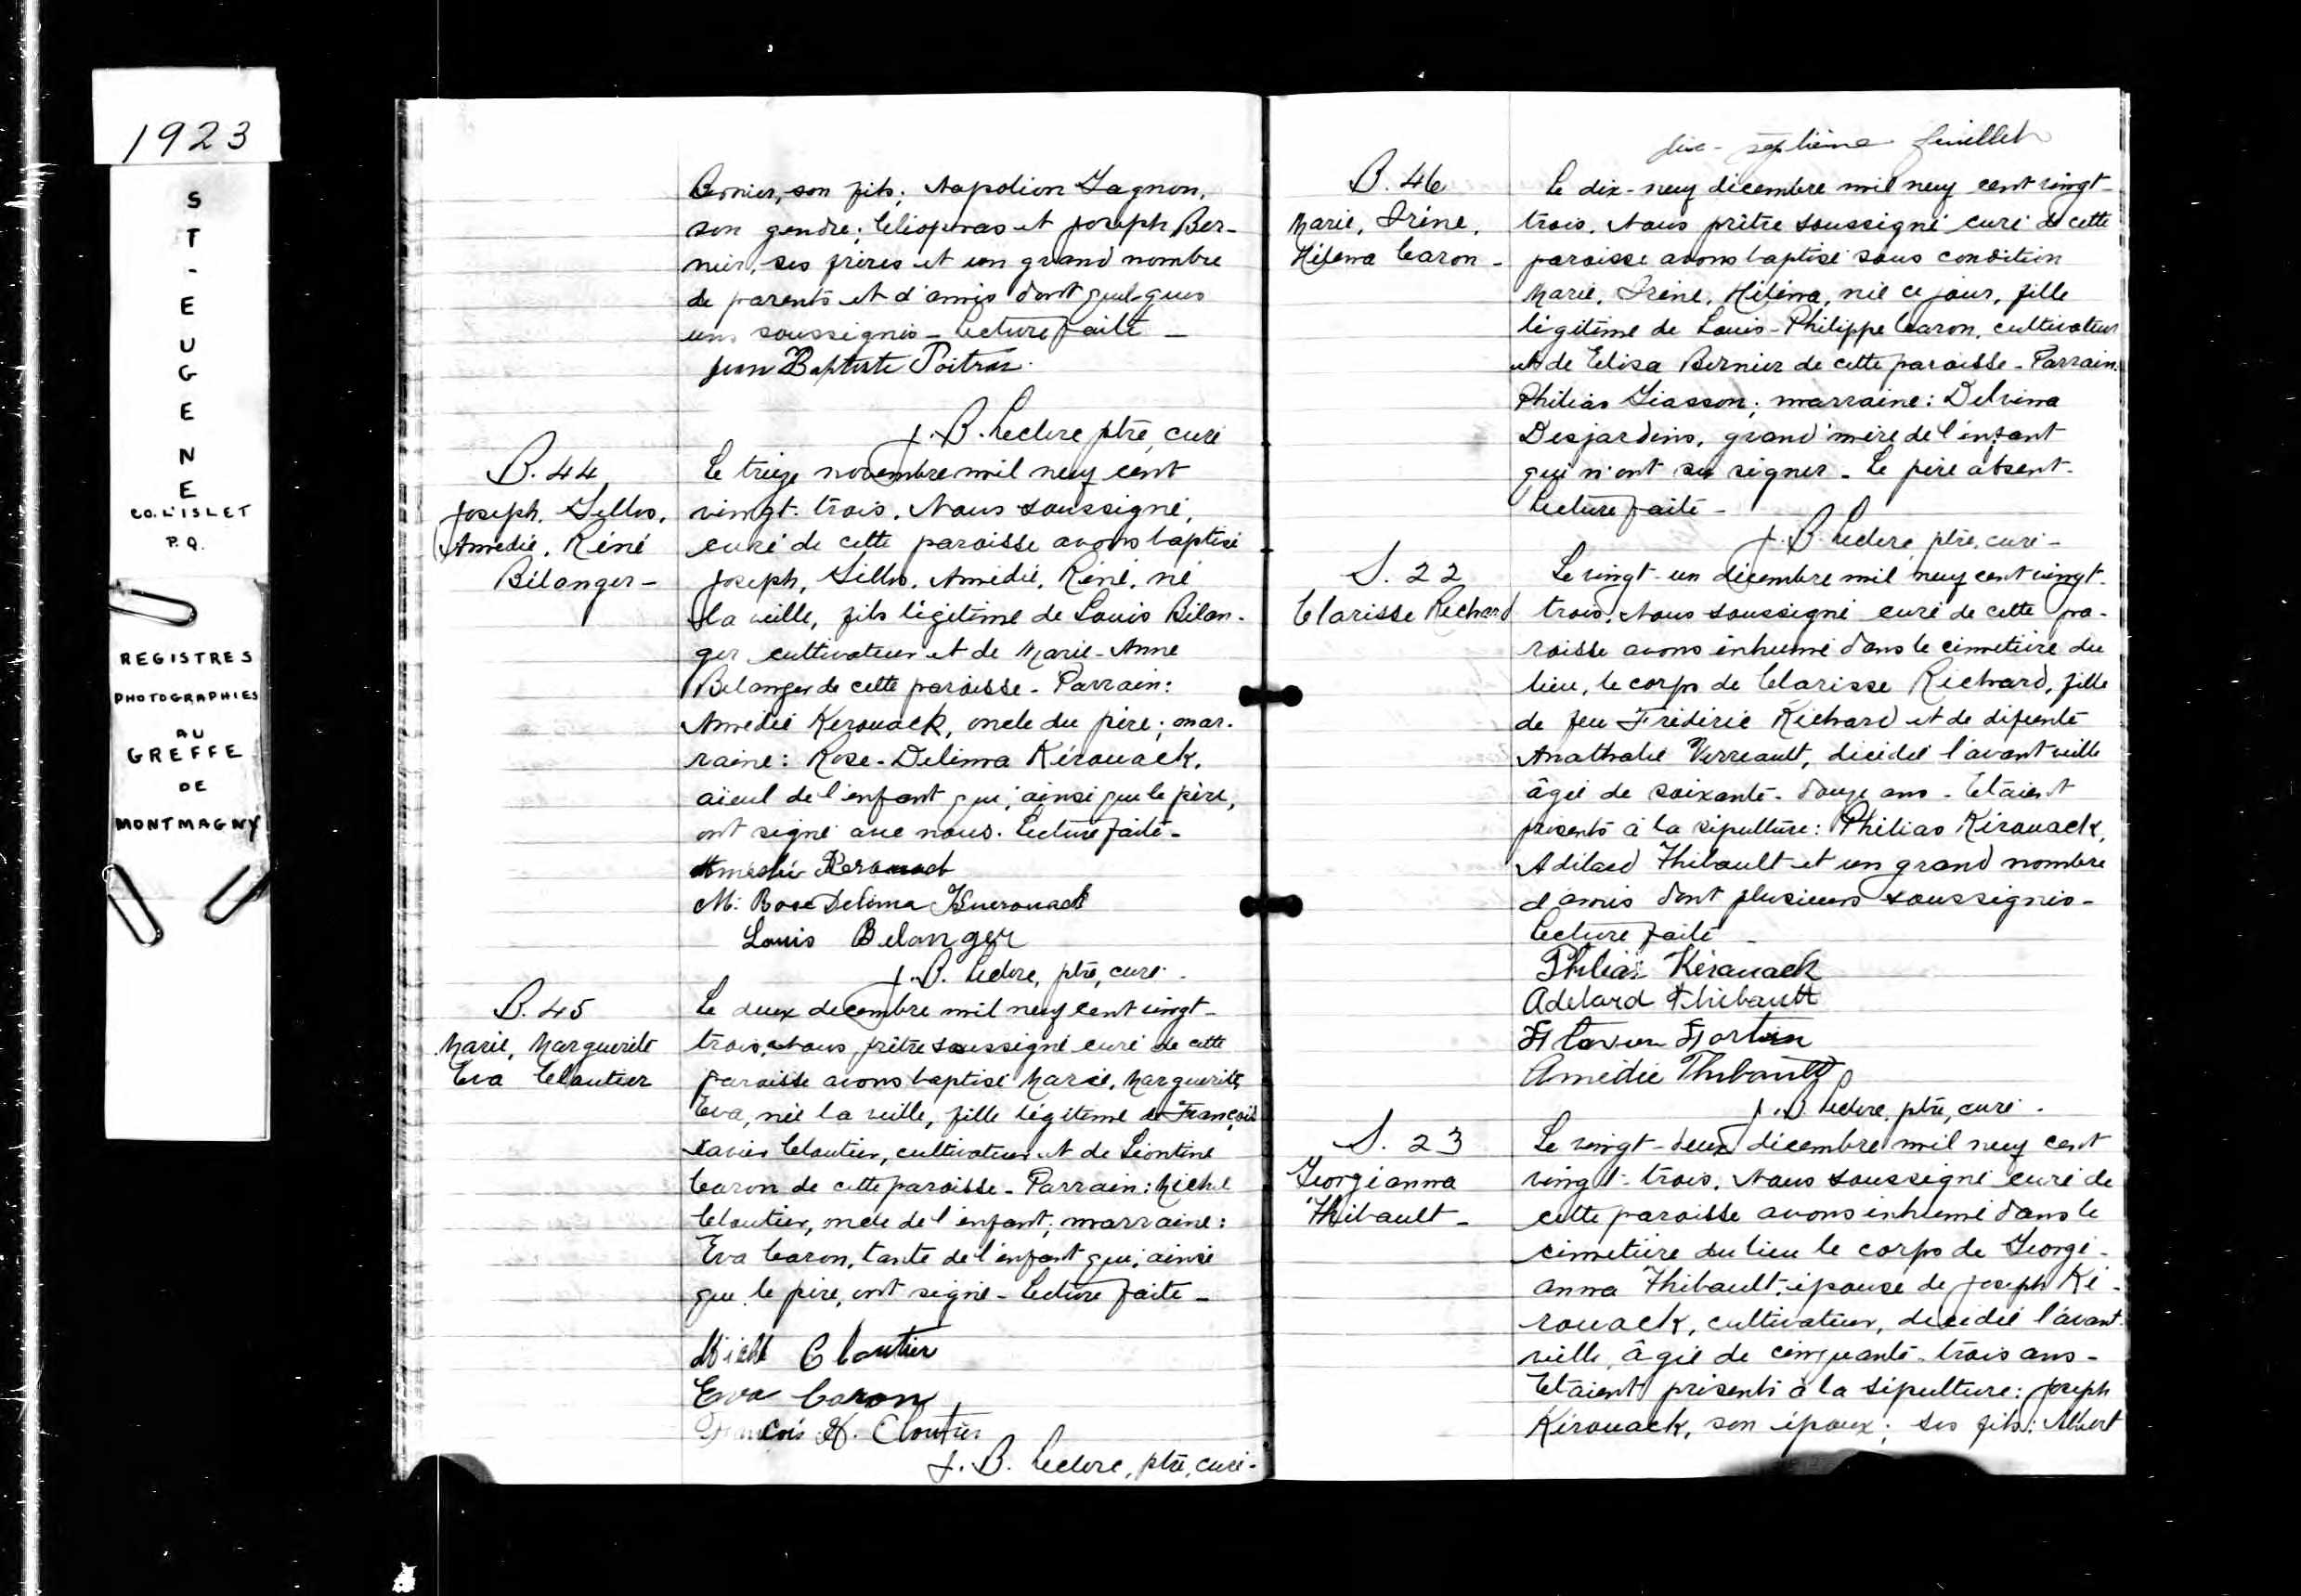 1923
ST-EUGENE
CO. L'ISLET
P.Q.
REGISTRES
PHOTOGRAPHIES
AU
GREFFE
DE
MONTMAGNY
Bernier, son fils; Napoléon Gagnon,
son gendre; Cléophas et Joseph Ber-
nier, ses frères et un grand nombre
de parents et d'amis dont quelques
uns soussignés - Lecture faite -
Jean Baptiste Poitras.
J. B. Leclerc ptre, curé
B. 44
Joseph, Gilles,
Amédée, Réné
Bélanger -
Le treize novembre mil neuf cent
vingt-trois, Nous soussigné,
curé de cette paroisse avons baptisé
Joseph, Gilles, Amédée, Réné, né
la veille, fils légitime de Louis Bélan-
ger cultivateur et de Marie-Anne
Bélanger de cette paroisse - Parrain:
Amédée Kerouack, oncle du père; mar-
raine: Rose-Delima Kérouack,
aïeul de l'enfant qui, ainsi que le père,
ont signé avec nous. Lecture faite -
Amédée Kerouack
M. Rose Delima Kuerouack
Louis Belanger
J. B. Leclerc, ptre, curé -
B. 45
Marie, Marguerite
Eva Cloutier
Le deux decembre mil neuf cent vingt-
trois, Nous prêtre soussigné curé de cette
paroisse avons baptisé Marie, Marguerite,
Eva, née la veille, fille légitime de François
Xavier Cloutier, cultivateur et de Léontine
Caron de cette paroisse - Parrain: Michel
Cloutier, oncle de l'enfant; marraine:
Eva Caron, tante de l'enfant qui, ainsi
que le père, ont signé - Lecture faite -
Michel Cloutier
Eva Caron
François X. Cloutier
J. B. Leclerc, ptre, curé -
dix-septième feuillet
B. 46
Marie, Irène,
Héléna Caron -
Le dix-neuf décembre mil neuf cent vingt-
trois, Nous prêtre soussigné curé de cette
paroisse avons baptisé sous condition
Marie, Irène, Héléna, née ce jour, fille
légitime de Louis-Philippe Caron, cultivateur
et de Eliza Bernier de cette paroisse - Parrain:
Philias Giasson; marraine: Delvina
Desjardins, grand'mère de l'enfant
qui n'ont su signer - Le père absent -
Lecture faite -
J. B. Leclerc, ptre, curé -
S. 22
Clarisse Richard
Le vingt-un décembre mil neuf cent vingt-
trois, Nous soussigné curé de cette pa-
roisse avons inhumé dans le cimetière du
lieu, le corps de Clarisse Richard, fille
de feu Frédéric Richard et de défunte
Anathalie Verreault, décédée l'avant veille
âgée de soixante-douze ans - Etaient
présents à la sépulture: Philias Kérouack,
Adélard Thibault et un grand nombre
d'amis dont plusieurs soussignés -
Lecture faite -
Philias Kérouack
Adelard Thibault
Fortin
Amedée Thibault
J. B. Leclerc, ptre, curé.
S. 23
Georgianna
Thibault -
Le vingt-deux décembre mil neuf cent
vingt-trois, Nous soussigné curé de
cette paroisse avons inhumé dans le
cimetière du lieu le corps de Georgi-
anna Thibault, épouse de Joseph Ké-
rouack, cultivateur, décédée l'avant
veille, âgée de cinquante-trois ans -
Etaient présents à la sépulture: Joseph
Kérouack, son époux; ses fils: Albert